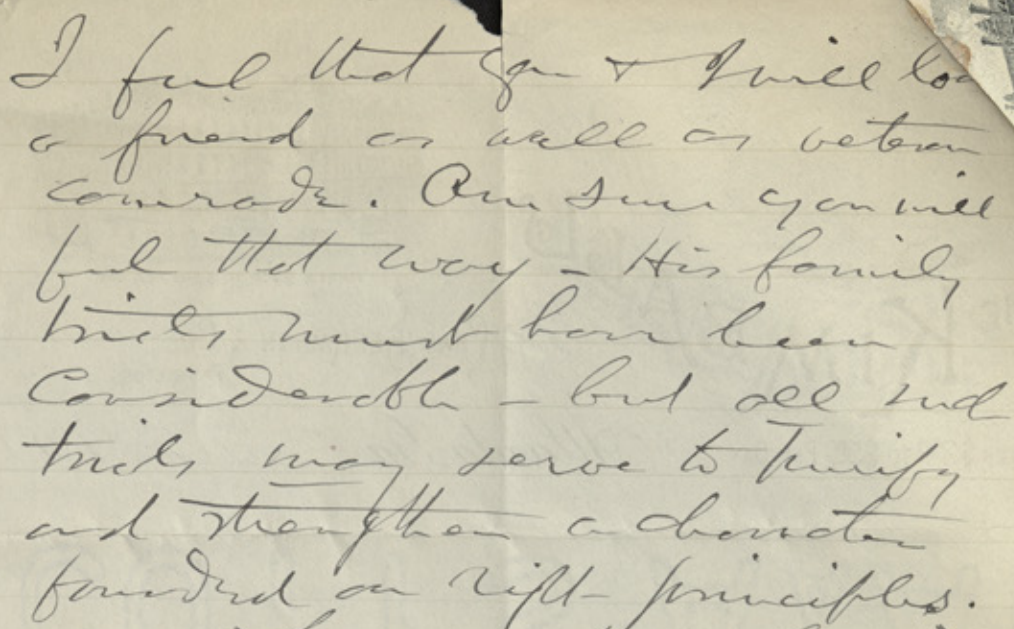 I feel that you + I will
a friend as well as veteran
comrade. Am sure you will
feel that way - His family
trials must have been
Considerable - but all such
trials may serve to purify
and strengthen a character
founded on right principles.